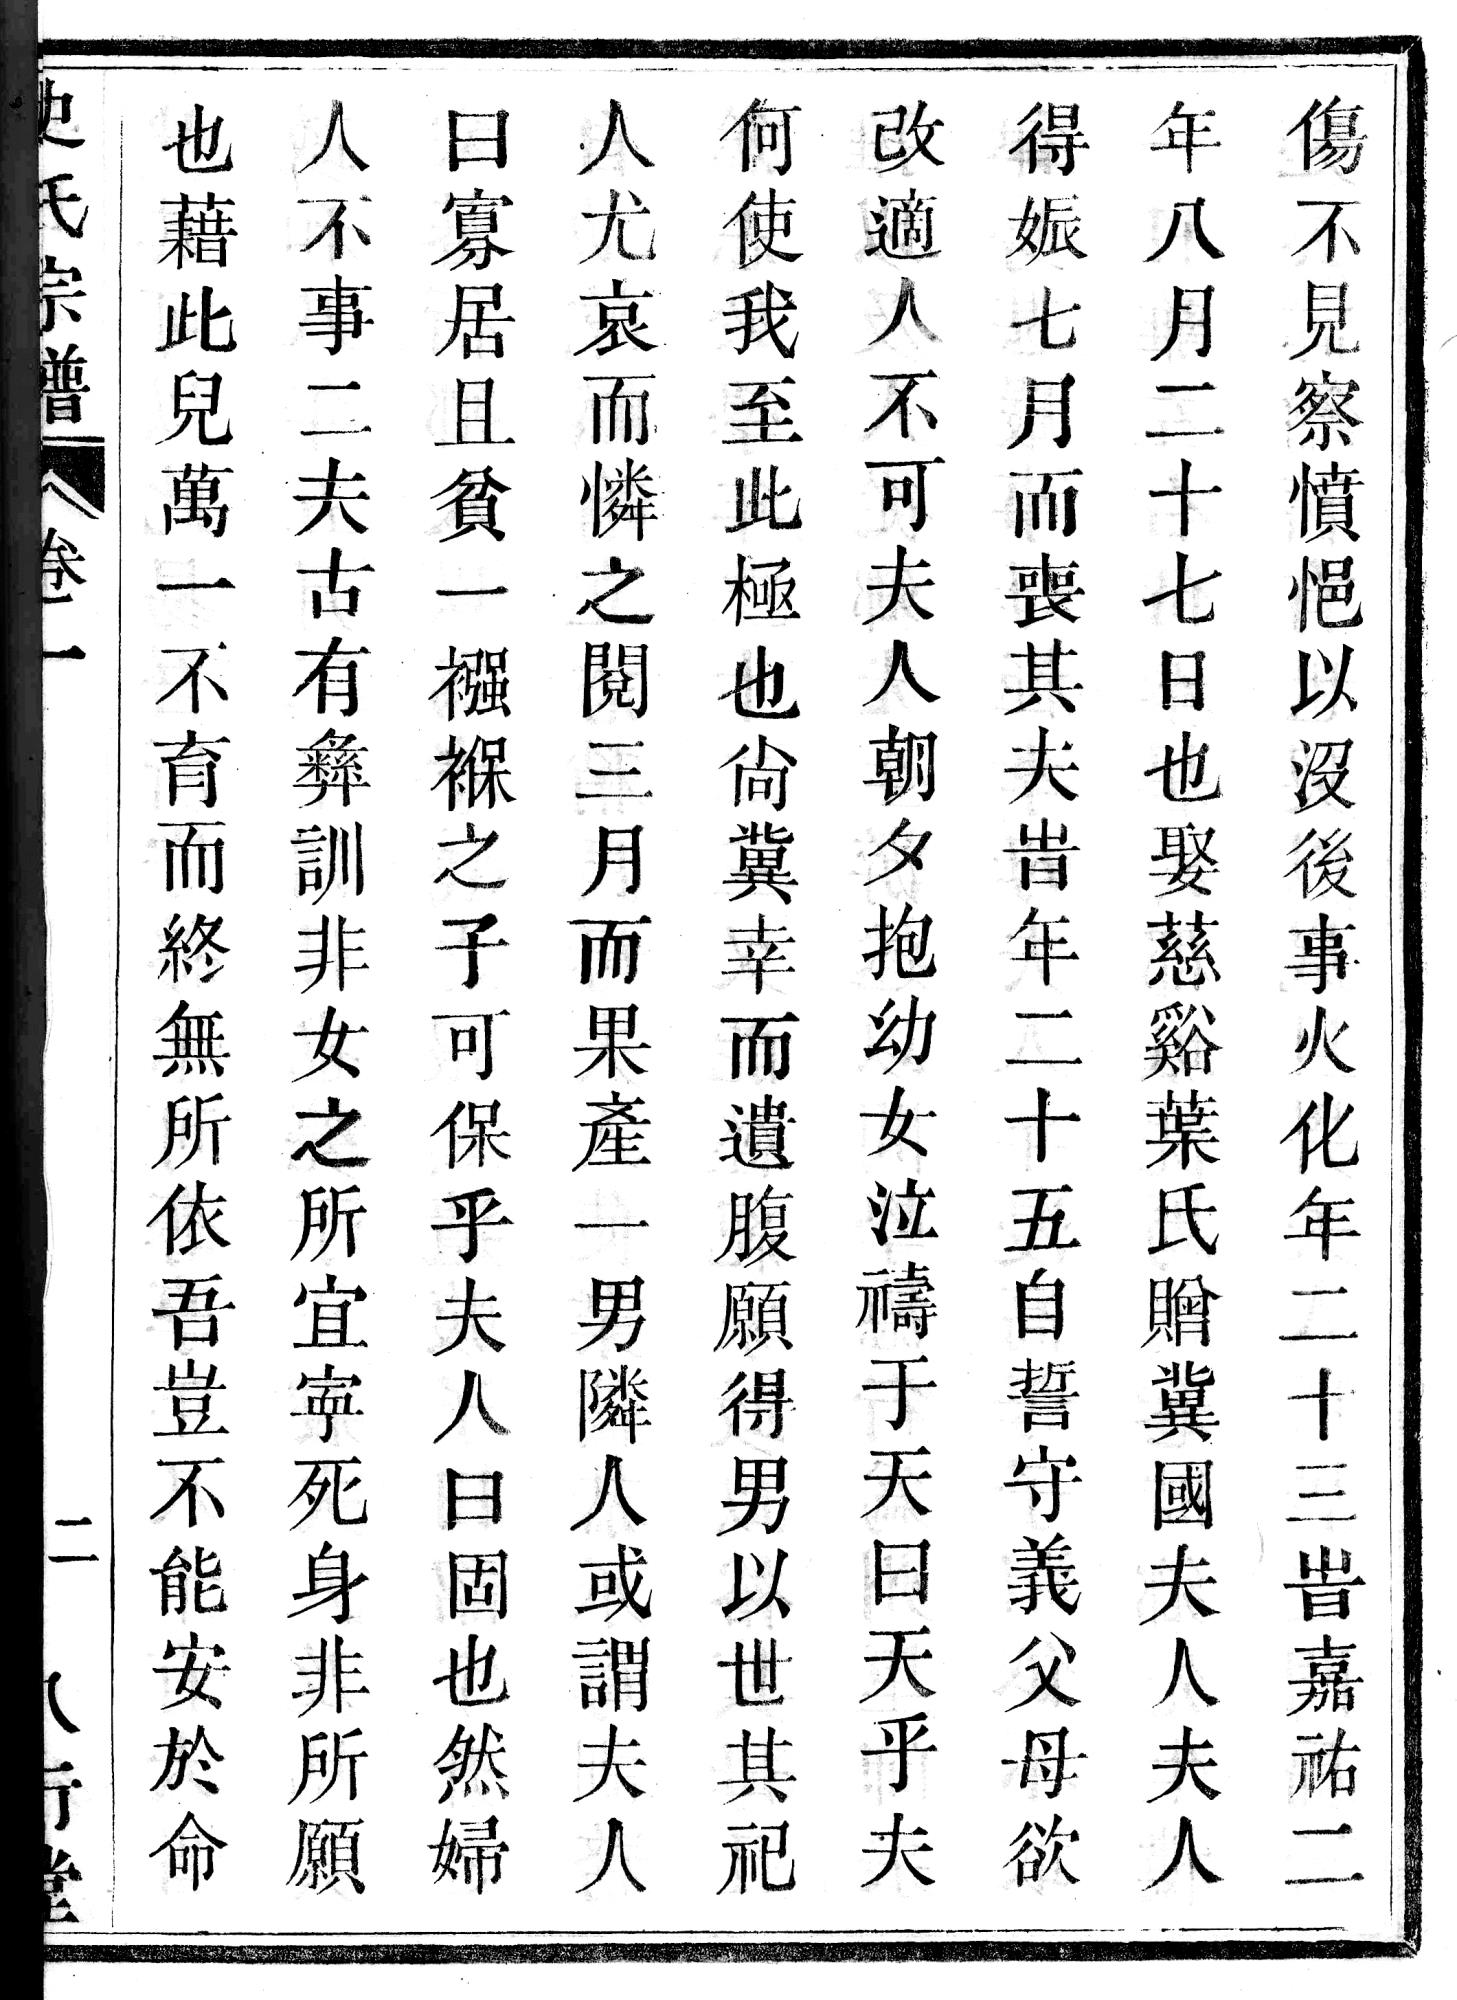 傷不見察憤悒以沒後事火化年二十三旹嘉祐二
年八月二十七日也娶慈谿葉氏贈冀國夫人夫人
得娠七月而喪其夫旹年二十五自誓守義父母欲
改適人不可夫人朝夕抱幼女泣禱于天曰天乎夫
何使我至此極也尙冀幸而遺腹願得男以世其祀
人尤哀而憐之閱三月而果產一男隣人或謂夫人
曰寡居且貧一襁褓之子可保乎夫人曰固也然婦
人不事二夫古有彝訓非女之所宜寧死身非所願
也藉此兒萬一不育而終無所依吾豈不能安於命
史氏宗譜 卷一 二 八行堂